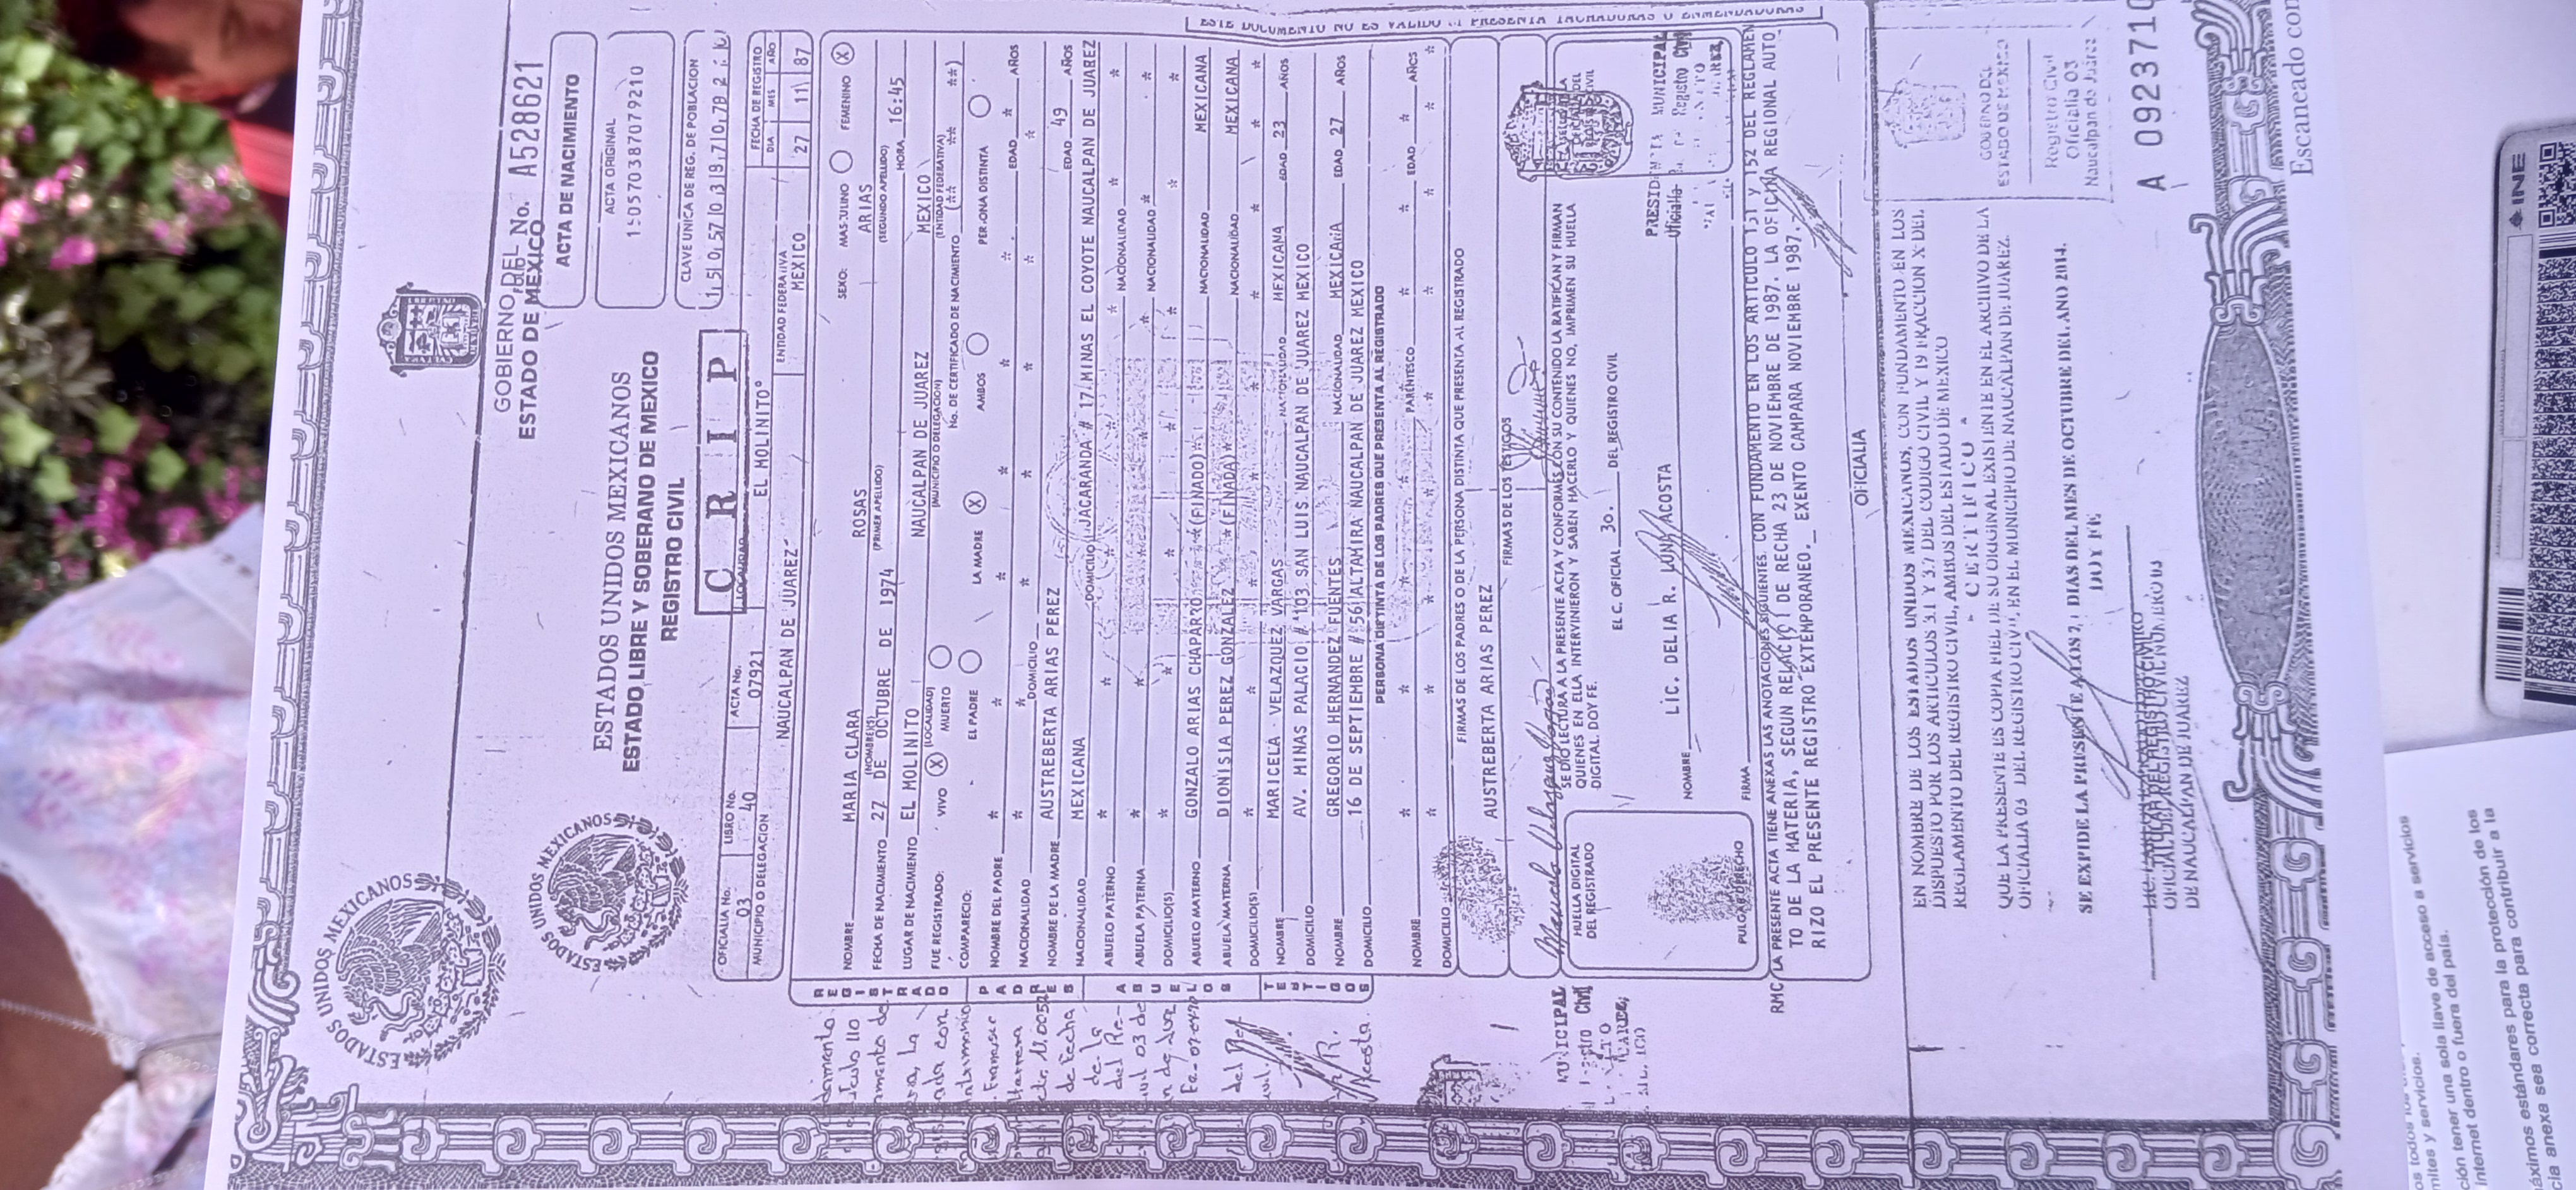 ESTADOS UNIDOS MEXICANOS
GOBIERNO DEL
ESTADO DE MÉXICO
No. A528621
ESTADOS UNIDOS MEXICANOS
ESTADOS UNIDOS MEXICANOS
ESTADO LIBRE Y SOBERANO DE MEXICO
REGISTRO CIVIL
ACTA DE NACIMIENTO
ACTA ORIGINAL
CLAVE UNICA DE REG. DE POBLACION
C R I P
OFICIALIA No. 03
LIBRO No. 40
ACTA No. 07921
EL MOLINITO
FECHA DE REGISTRO
DIA MES AÑO
27 11 87
MUNICIPIO O DELEGACION
NAUCALPAN DE JUAREZ
ENTIDAD FEDERATIVA
MEXICO
REGISTRADO
NOMBRE MARIA CLARA ROSAS ARIAS
(NOMBRE(S) (PRIMER APELLIDO) (SEGUNDO APELLIDO)
SEXO: MASCULINO FEMENINO X
FECHA DE NACIMIENTO 27 DE OCTUBRE DE 1974 HORA 16:45
LUGAR DE NACIMIENTO EL MOLINITO NAUCALPAN DE JUAREZ MEXICO
(LOCALIDAD) (MUNICIPIO O DELEGACION) (ENTIDAD FEDERATIVA)
FUE REGISTRADO: VIVO X MUERTO No. DE CERTIFICADO DE NACIMIENTO (** ** **)
COMPARECIO: EL PADRE LA MADRE X AMBOS PERSONA DISTINTA
PADRES
NOMBRE DEL PADRE * * * * * EDAD * AÑOS
NACIONALIDAD * DOMICILIO * * * * *
NOMBRE DE LA MADRE AUSTREBERTA ARIAS PEREZ EDAD 49 AÑOS
NACIONALIDAD MEXICANA DOMICILIO JACARANDA # 17 MINAS EL COYOTE NAUCALPAN DE JUAREZ
ABUELOS
ABUELO PATERNO * * * * NACIONALIDAD * *
ABUELA PATERNA * * * NACIONALIDAD * *
DOMICILIO(S) * * * * * * *
ABUELO MATERNO GONZALO ARIAS CHAPARRO * *(FINADO)* NACIONALIDAD MEXICANA
ABUELA MATERNA DIONISIA PEREZ GONZALEZ * *(FINADA)* NACIONALIDAD MEXICANA
DOMICILIO(S) * * * * * * * *
TESTIGOS
NOMBRE MARICELA VELAZQUEZ VARGAS NACIONALIDAD MEXICANA EDAD 23 AÑOS
DOMICILIO AV. MINAS PALACIO # 103 SAN LUIS NAUCALPAN DE JUAREZ MEXICO
NOMBRE GREGORIO HERNANDEZ FUENTES NACIONALIDAD MEXICANA EDAD 27 AÑOS
DOMICILIO 16 DE SEPTIEMBRE # 56 ALTAMIRA NAUCALPAN DE JUAREZ MEXICO
PERSONA DISTINTA DE LOS PADRES QUE PRESENTA AL REGISTRADO
NOMBRE * * * PARENTESCO * * EDAD * AÑOS
DOMICILIO * * * * * * * *
FIRMAS DE LOS PADRES O DE LA PERSONA DISTINTA QUE PRESENTA AL REGISTRADO
AUSTREBERTA ARIAS PEREZ
FIRMAS DE LOS TESTIGOS
SE DIO LECTURA A LA PRESENTE ACTA Y CONFORMES CON SU CONTENIDO LA RATIFICAN Y FIRMAN
QUIENES EN ELLA INTERVINIERON Y SABEN HACERLO Y QUIENES NO, IMPRIMEN SU HUELLA
DIGITAL. DOY FE.
HUELLA DIGITAL
DEL REGISTRADO
PULGAR DERECHO
EL C. OFICIAL 3o. DEL REGISTRO CIVIL
NOMBRE LIC. DELIA R. LUNA ACOSTA
FIRMA
PRESIDENCIA MUNICIPAL
LA PRESENTE ACTA TIENE ANEXAS LAS ANOTACIONES SIGUIENTES. CON FUNDAMENTO EN LOS ARTICULO 151 y 152 DEL REGLAMEN
TO DE LA MATERIA, SEGUN RELACION DE RECHA 23 DE NOVIEMBRE DE 1987. LA OFICINA REGIONAL AUTO
RIZO EL PRESENTE REGISTRO EXTEMPORANEO. EXENTO CAMPARA NOVIEMBRE 1987.
RMC
OFICIALIA
EN NOMBRE DE LOS ESTADOS UNIDOS MEXICANOS, CON FUNDAMENTO EN LOS
DISPUESTO POR LOS ARTICULOS 3.1 Y 3.7 DEL CODIGO CIVIL Y 19 FRACCION X DEL
REGLAMENTO DEL REGISTRO CIVIL, AMBOS DEL ESTADO DE MEXICO
CERTIFICO
QUE LA PRESENTE ES COPIA FIEL DE SU ORIGINAL EXISTENTE EN EL ARCHIVO DE LA
OFICIALIA 03 DEL REGISTRO CIVIL, EN EL MUNICIPIO DE NAUCALPAN DE JUAREZ.
DIAS DEL MES DE OCTUBRE DEL AÑO 2014.
DOY FE
OFICIAL DEL REGISTRO CIVIL NUMERO 03
DE NAUCALPAN DE JUAREZ
GOBIERNO DEL
ESTADO DE MEXICO
Registro Civil
Oficialia 03
Naucalpan de Juarez
ESTE DOCUMENTO NO ES VALIDO SI PRESENTA TACHADURAS O ENMENDADURAS
Escaneado con
INE
mites y servicios.
ción tener una sola llave de acceso a servicios
internet dentro o fuera del país.
máximos estándares para la protección de los
cia anexa sea correcta para contribuir a la